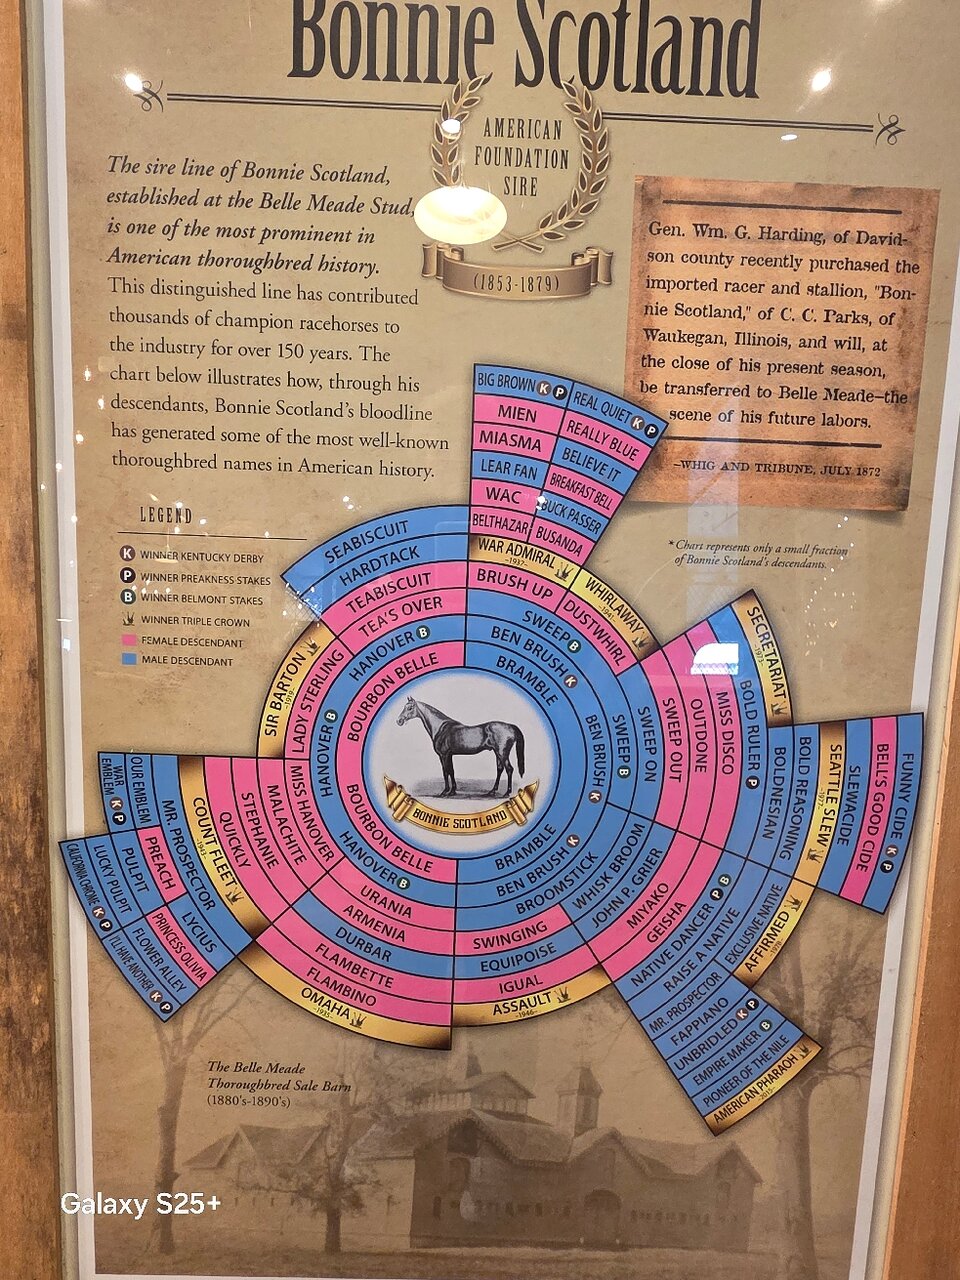 Bonnie Scotland
AMERICAN
FOUNDATION
SIRE
(1853-1879)
The sire line of Bonnie Scotland,
established at the Belle Meade Stud,
is one of the most prominent in
American thoroughbred history.
This distinguished line has contributed
thousands of champion racehorses to
the industry for over 150 years. The
chart below illustrates how, through his
descendants, Bonnie Scotland's bloodline
has generated some of the most well-known
thoroughbred names in American history.
Gen. Wm. G. Harding, of David-
son county recently purchased the
imported racer and stallion, "Bon-
nie Scotland," of C. C. Parks, of
Waukegan, Illinois, and will, at
the close of his present season,
be transferred to Belle Meade—the
scene of his future labors.
—WHIG AND TRIBUNE, JULY 1872
*Chart represents only a small fraction
of Bonnie Scotland's descendants.
LEGEND
K WINNER KENTUCKY DERBY
P WINNER PREAKNESS STAKES
B WINNER BELMONT STAKES
WINNER TRIPLE CROWN
FEMALE DESCENDANT
MALE DESCENDANT
BIG BROWN K P
MIEN
MIASMA
LEAR FAN
WAC
BELTHAZAR
REAL QUIET K P
REALLY BLUE
BELIEVE IT
BREAKFAST BELL
BUCK PASSER
BUSANDA
WAR ADMIRAL
-1937-
BRUSH UP
WHIRLAWAY
-1941-
DUSTWHIRL
SWEEP B
BEN BRUSH K
BRAMBLE
SEABISCUIT
HARDTACK
TEABISCUIT
TEA'S OVER
HANOVER B
BOURBON BELLE
SIR BARTON
-1919-
LADY STERLING
HANOVER B
SECRETARIAT
-1973-
BOLD RULER P
MISS DISCO
OUTDONE
SWEEP OUT
SWEEP ON
SWEEP B
BEN BRUSH K
FUNNY CIDE K P
BELL'S GOOD CIDE
SLEWACIDE
SEATTLE SLEW
-1977-
BOLD REASONING
BOLDNESIAN
AFFIRMED
-1978-
EXCLUSIVE NATIVE
RAISE A NATIVE
NATIVE DANCER P B
GEISHA
MIYAKO
JOHN P. GRIER
WHISK BROOM
MR. PROSPECTOR
FAPPIANO
UNBRIDLED K P
EMPIRE MAKER B
PIONEER OF THE NILE
AMERICAN PHAROAH
-2015-
BRAMBLE
BEN BRUSH K
BROOMSTICK
SWINGING
EQUIPOISE
IGUAL
ASSAULT
-1946-
BOURBON BELLE
HANOVER B
URANIA
ARMENIA
DURBAR
FLAMBETTE
FLAMBINO
OMAHA
-1935-
MISS HANOVER
MALACHITE
STEPHANIE
QUICKLY
COUNT FLEET
-1943-
MR. PROSPECTOR
OUR EMBLEM
WAR EMBLEM K P
LYCIUS
PREACH
PULPIT
LUCKY PULPIT
CALIFORNIA CHROME K P
PRINCESS OLIVIA
FLOWER ALLEY
I'LL HAVE ANOTHER K P
BONNIE SCOTLAND
The Belle Meade
Thoroughbred Sale Barn
(1880's-1890's)
Galaxy S25+